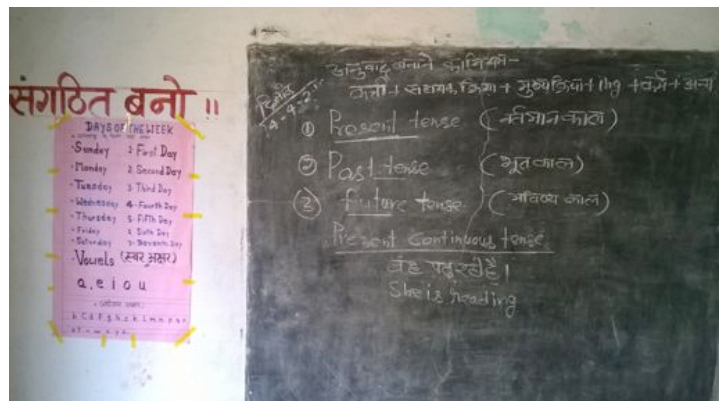 संगठित बनो !!
DAYS OF THE WEEK
Sunday 1 First Day
Monday 2 Second Day
Tuesday 3 Third Day
Wednesday 4 Fourth Day
Thursday 5 Fifth Day
Friday 6 Sixth Day
Saturday 7 Seventh Day
Vowels (स्वर अक्षर)
a, e i o u
b c d f g h j k l m n p q r
अनुवाद बनाने का
कर्ता + सहायक क्रिया + मुख्य क्रिया + ing + कर्म + अन्य
① Present tense (वर्तमान काल)
② Past tense (भूत काल)
③ future tense (भविष्य काल)
Present continuous tense
वह पढ़ रही है।
She is reading